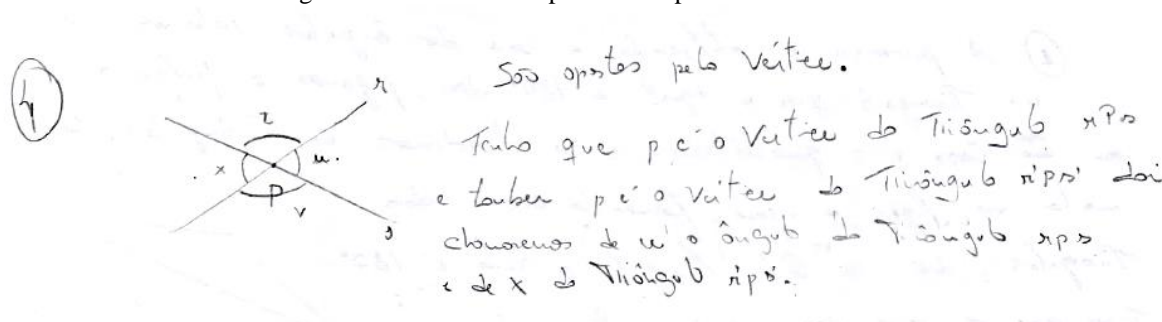 4
São opostos pelo Vértice.
r
z
x
u.
P
v
s
Tenho que p é o Vertice do Triângulo rPs
e tambem p é o Vértice do Triângulo r'ps' daí
chamaremos de u o ângulo do Triângulo rps
e de x do Triângulo r'ps'.